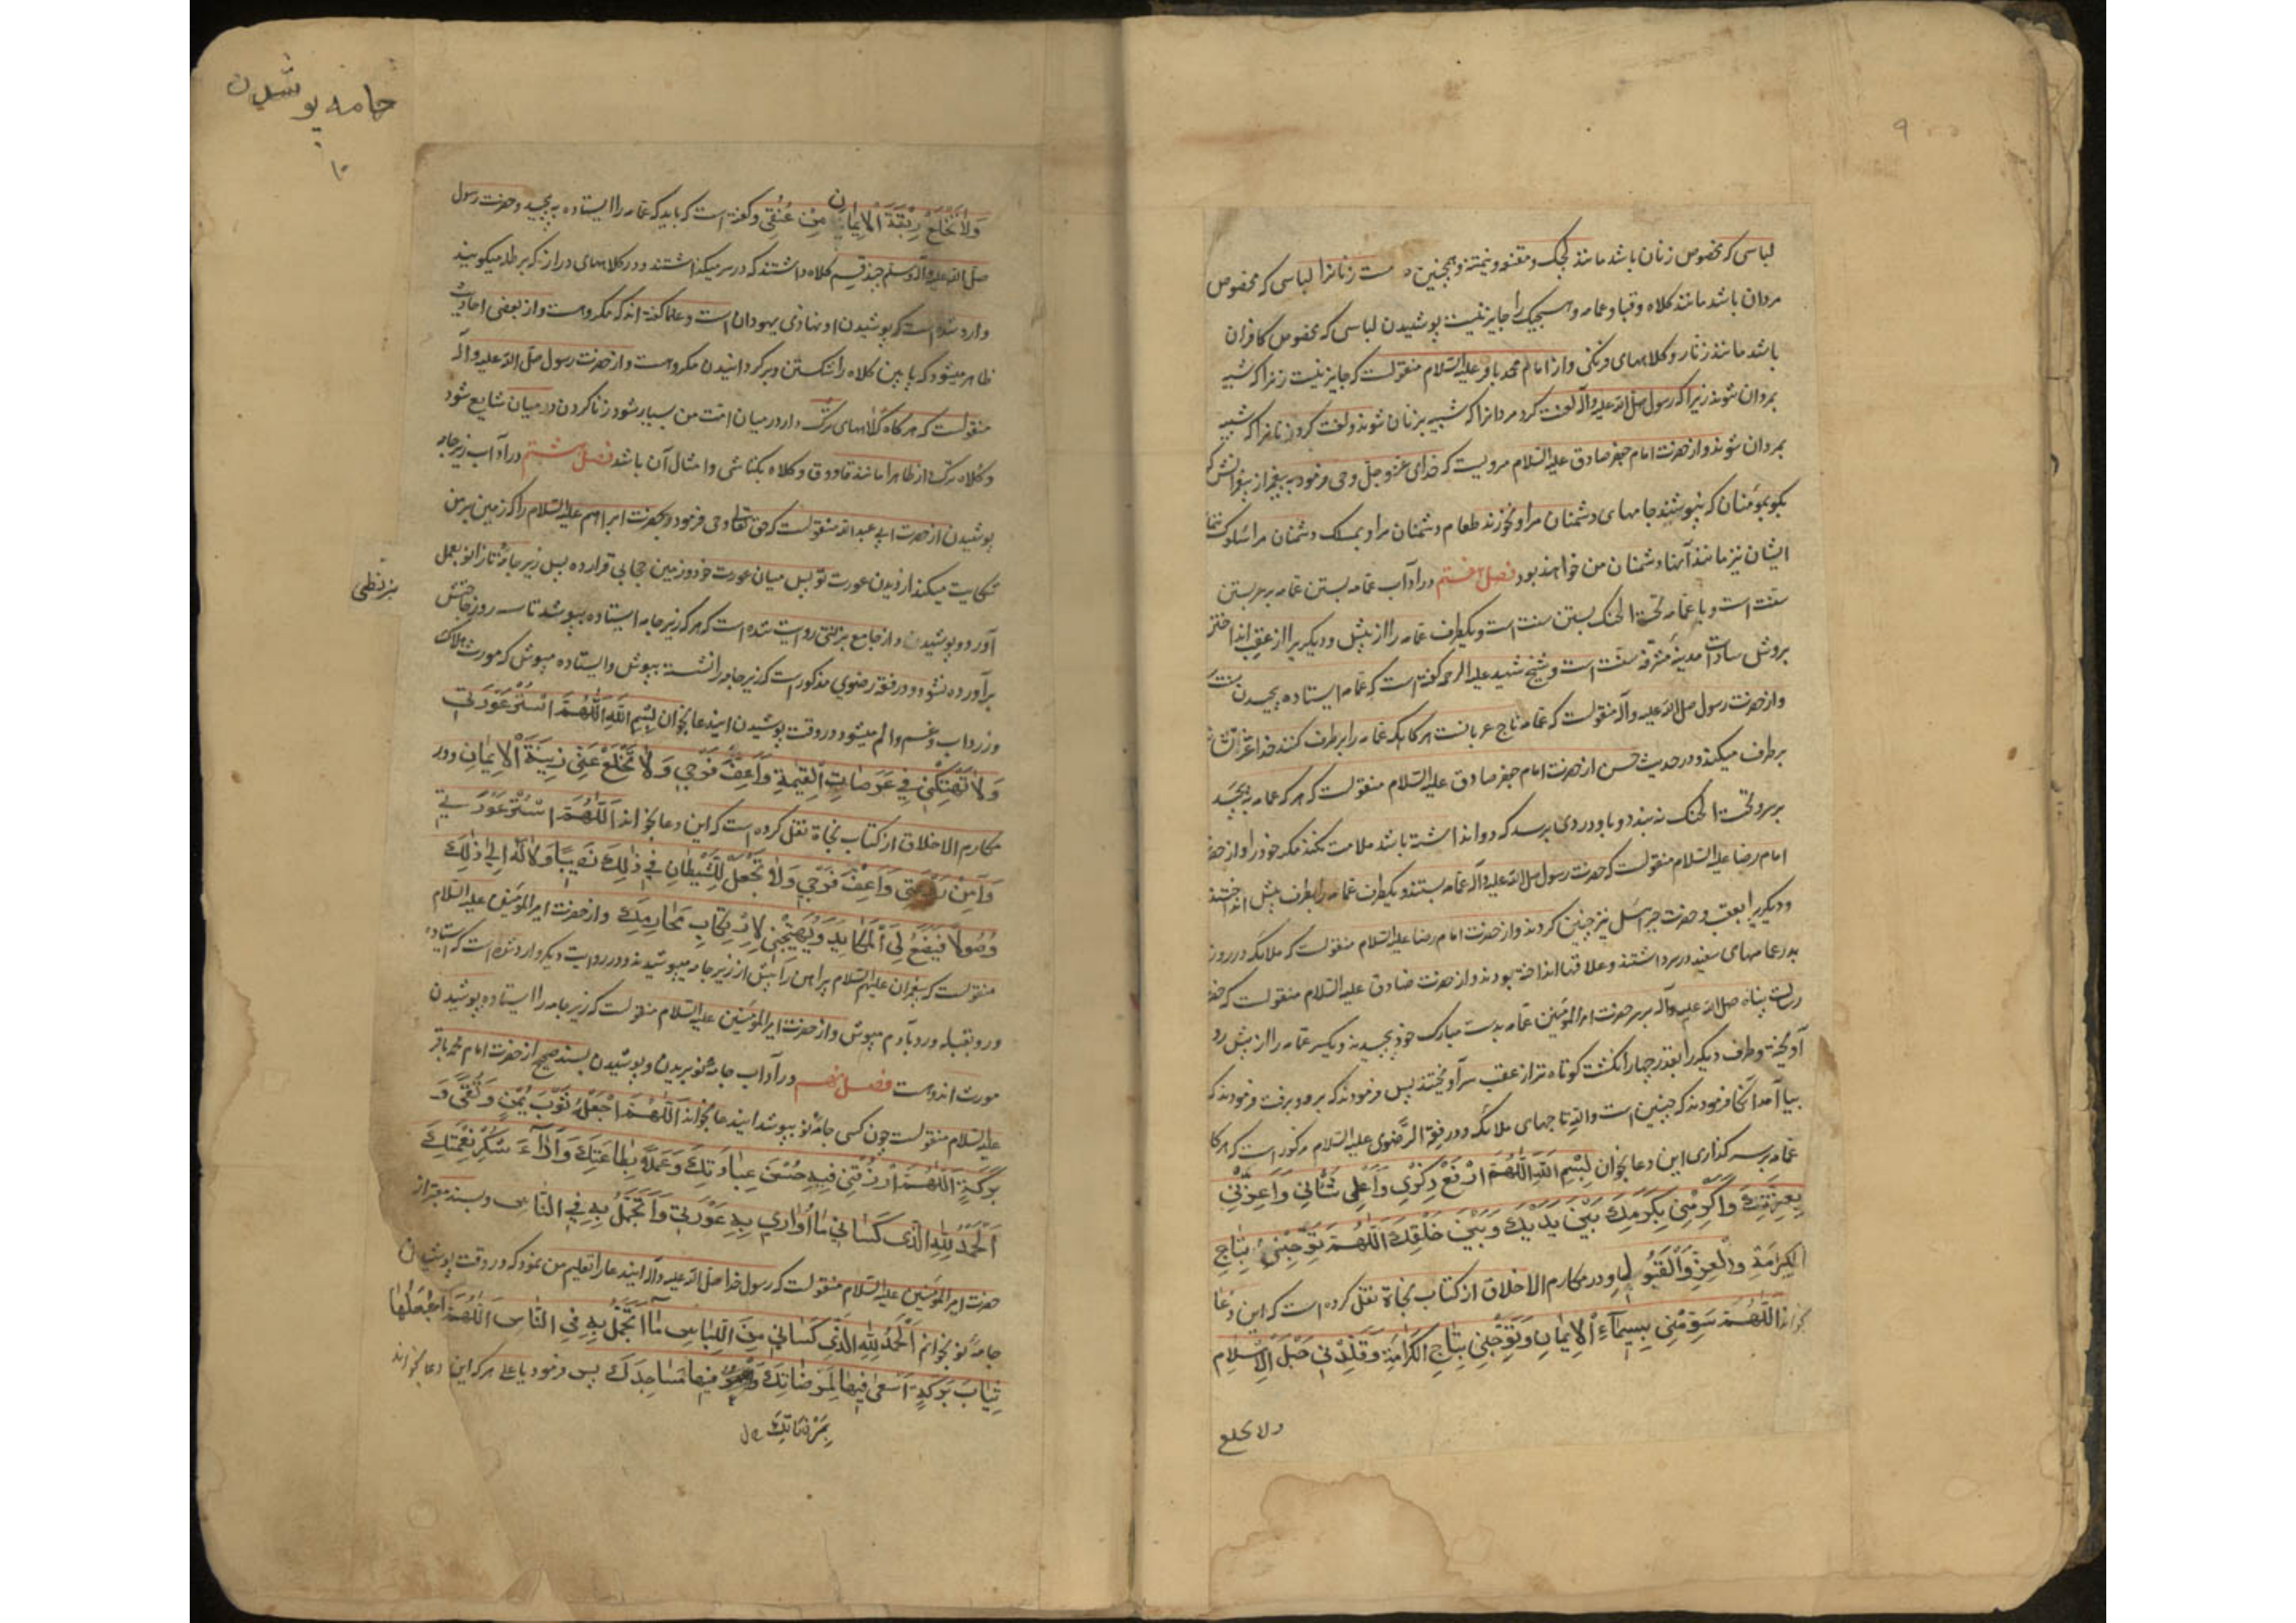 ۹
لباسی که مخصوص زنان باشد مانند لجک و مقنعه و نیمتنه و همچنین زنانرا لباسی که مخصوص
مردان باشد مانند کلاه و قبا و عمامه و هیچیک را جایز نیست پوشیدن لباسی که مخصوص کافران
باشد مانند زنار و کلاههای فرنکی و از امام محمد باقر علیه السلام منقولست که جایز نیست زنرا که شبیه
بمردان شوند زیرا که رسول صلی الله علیه وآله لعنت کرد مردانرا که شبیه بزنان شوند و لعنت کرد زنانرا که شبیه
بمردان شوند و از حضرت امام جعفر صادق علیه السلام مرویست که خدای عز و جل وحی فرمود به پیغمبر از پیغمبرانش که
بکو بمومنان که نپوشند جامهای دشمنان مرا و نخورند طعام دشمنان مرا و بمسلک دشمنان مرا سلوک
ایشان نیز مانند آنها دشمنان من خواهند بود فصل هفتم در آداب عمامه بستن عمامه بر سر بستن
سنت است و با عمامه تحت الحنک بستن سنت است و یکطرف عمامه را از پیش و دیکریرا از عقب انداختن
بروش سادات مدینه مشرفه سنت است و شیخ شهید علیه الرحمه کفته است که عمامه ایستاده پیچیدن سنت
و از حضرت رسول صلی الله علیه وآله منقولست که عمامه تاج عربانست هرکاه که عمامه را برطرف کنند خدا عزت
برطرف میکند و در حدیث حسن از حضرت امام جعفر صادق علیه السلام منقولست که هر که عمامه به پیچد
بر سر و تحت الحنک نه بندد و باو دردی برسد که دوا نداشته باشد ملامت نکند مکر خود را و از حضرت
امام رضا علیه السلام منقولست که حضرت رسول صلی الله علیه وآله عمامه بستند و یکطرف عمامه را بطرف پیش انداختند
و دیکریرا بعقب و حضرت جبرائیل نیز چنین کردند و از حضرت امام رضا علیه السلام منقولست که ملائکه در روز
بدر عمامهای سفید در سر داشتند و علاقها انداخته بودند و از حضرت صادق علیه السلام منقولست که حضرت
رسالت پناه صلی الله علیه وآله بر سر حضرت امیر المومنین عمامه بدست مبارک خود پیچیدند و یکسر عمامه را از پیش رو
آویختند و طرف دیکر را بقدر چهار انکشت کوتاه تر از عقب سر آویختند پس فرمودند که برو و برفت فرمودند که
بیا آمد آنکاه فرمودند که چنین است والله تاجهای ملائکه و در فقه الرضوی علیه السلام مذکور است که هرکاه
عمامه بر سر کذاری این دعا بخوان بِسْمِ اللهِ اَللّٰهُمَّ ارْفَعْ ذِكْري وَاَعْلِ شَأْني وَاَعِزَّني
بِعِزَّتِكَ وَاَكْرِمْني بِكَرَمِكَ بَيْنَ يَدَيْكَ وَبَيْنَ خَلْقِكَ اَللّٰهُمَّ تَوِّجْني بِتاجِ
الْكَرامَةِ وَالْعِزِّ وَالْقَبُولِ و در مکارم الاخلاق از کتاب نجاة نقل کرده است که این دعا
بخواند اَللّٰهُمَّ سَوِّمْني بِسيمآءِ الْايمانِ وَتَوِّجْني بِتاجِ الْكَرامَةِ وَقَلِّدْني حَبْلَ الْاِسْلامِ
ولا تخلع
جامه پوشیدن
۱۰
وَلا تَخْلَعْ رِبْقَةَ الْايمانِ مِنْ عُنُقي و کفته است که باید که عمامه را ایستاده به پیچید و حضرت رسول
صلی الله علیه وآله وسلم چند قسم کلاه داشتند که در سر میکذاشتند و در کلاههای دراز که برطله میکویند
وارد شده است که پوشیدن او نهادی یهودان است و علما کفته اند که مکروهست و از بعضی احادیث
ظاهر میشود که پایین کلاه را شکستن و برکردانیدن مکروهست و از حضرت رسول صلی الله علیه وآله
منقولست که هرکاه کلاههای ترک دار در میان امت من بسیار شود زنا کردن در میان شایع شود
و کلاه ترک از ظاهرا مانند قاووق و کلاه بکتاشی و امثال آن باشد فصل هشتم در آداب زیرجامه
پوشیدن از حضرت ابی عبدالله منقولست که حق تعالی وحی فرمود بحضرت ابراهیم علیه السلام را که زمین بمن
شکایت میکند از دیدن عورت تو پس میان عورت خود و زمین حجابی قرار ده پس زیر جامه تا زانو بعمل
آورد و پوشیدن و از جامع بزنطی روایت شده است که هر که زیرجامه ایستاده بپوشد تا سه روز حاجتش
بزنطی
برآورده نشود و در فقه رضوی مذکور است که زیر جامه را نشسته بپوش و ایستاده مپوش که مورث هلاک
و زرداب و غم و الم میشود و در وقت پوشیدن ایندعا بخوان بِسْمِ اللهِ اَللّٰهُمَّ اسْتُرْ عَوْرَتي
وَلا تَهْتِكْني في عَرَصاتِ الْقِيمَةِ وَاَعِفَّ فَرْجي وَلا تَخْلَعْ عَنّي زينَةَ الْايمانِ و در
مکارم الاخلاق از کتاب نجاة نقل کرده است که این دعا بخواند اَللّٰهُمَّ اسْتُرْ عَوْرَتي
وَآمِنْ رَوْعَتي وَاَعِفَّ فَرْجي وَلا تَجْعَلْ لِلشَّيْطانِ في ذٰلِكَ نَصيباً وَلا لَهُ اِلىٰ ذٰلِكَ
وُصُولاً فَيَضَعَ لِيَ الْمَكايِدَ وَيُهَيِّجَني لِارْتِكابِ مَحارِمِكَ و از حضرت امیر المومنین علیه السلام
منقولست که پیغمبران علیهم السلام پیراهن را پیش از زیر جامه میپوشیدند و در روایت دیکر وارد شده است که ایستاده
و رو بقبله و رو بآدم مپوش و از حضرت امیر المومنین علیه السلام منقولست که زیر جامه را ایستاده پوشیدن
مورث اندوهست فصل نهم در آداب جامه نو بریدن و پوشیدن بسند صحیح از حضرت امام محمد باقر
علیه السلام منقولست چون کسی جامه نو بپوشد ایندعا بخواند اَللّٰهُمَّ اجْعَلْهُ ثَوْبَ يُمْنٍ وَتُقىً وَ
بَرَكَةٍ اَللّٰهُمَّ ارْزُقْني فيهِ حُسْنَ عِبادَتِكَ وَعَمَلاً بِطاعَتِكَ وَاَدآءَ شُكْرِ نِعْمَتِكَ
اَلْحَمْدُ لِلّٰهِ الَّذي كَساني ما اُواري بِهِ عَوْرَتي وَاَتَجَمَّلُ بِهِ فِي النّاسِ و بسند معتبر از
حضرت امیر المومنین علیه السلام منقولست که رسول خدا صلی الله علیه وآله ایندعا را تعلیم من نمود که در وقت پوشیدن
جامه نو بخوانم اَلْحَمْدُ لِلّٰهِ الَّذي كَساني مِنَ اللِّباسِ ما اَتَجَمَّلُ بِهِ فِي النّاسِ اَللّٰهُمَّ اجْعَلْها
ثِيابَ بَرَكَةٍ اَسْعىٰ فيها لِمَرْضاتِكَ فيها مَساجِدَكَ پس فرمود یا علی هر که این دعا بخواند
بمرضاتك